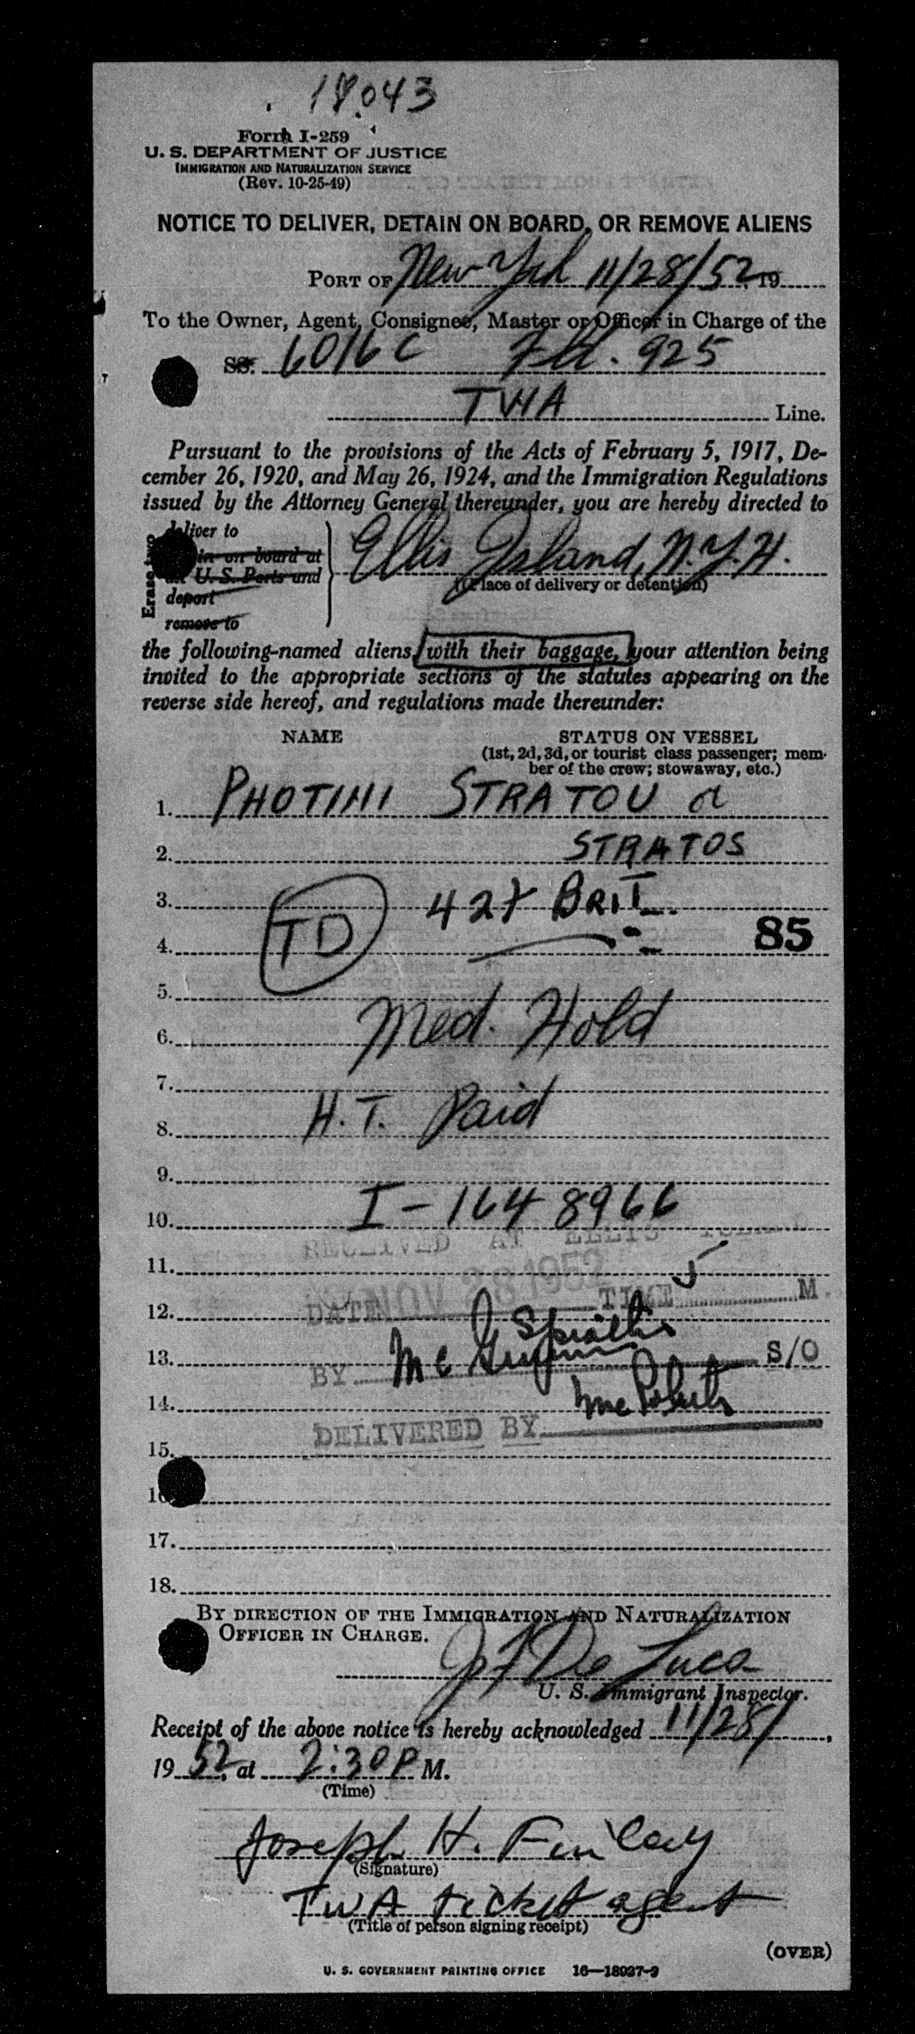 18043
Form I-259
U. S. DEPARTMENT OF JUSTICE
IMMIGRATION AND NATURALIZATION SERVICE
(Rev. 10-25-49)
NOTICE TO DELIVER, DETAIN ON BOARD, OR REMOVE ALIENS
PORT OF New York 11/28/52, 19
To the Owner, Agent, Consignee, Master or Officer in Charge of the
SS. 6016C Flt. 925
TWA Line.
Pursuant to the provisions of the Acts of February 5, 1917, De-
cember 26, 1920, and May 26, 1924, and the Immigration Regulations
issued by the Attorney General thereunder, you are hereby directed to
Erase two
deliver to
in on board at
U. S. Ports and
deport
remove to
Ellis Island, N.Y.H.
(Place of delivery or detention)
the following-named aliens, with their baggage, your attention being
invited to the appropriate sections of the statutes appearing on the
reverse side hereof, and regulations made thereunder:
NAME STATUS ON VESSEL
(1st, 2d, 3d, or tourist class passenger; mem-
ber of the crew; stowaway, etc.)
1. PHOTINI STRATOU or
2. STRATOS
3. 42 BRIT
4. TD 85
5.
6. Med. Hold
7.
8. H.T. Paid
9.
10. I-1648966
RECEIVED AT ELLIS ISLAND
11.
12. DATE NOV 28 1952 TIME M.
13. BY S/O
14. McRoberts
DELIVERED BY
15.
16
17.
18.
BY DIRECTION OF THE IMMIGRATION AND NATURALIZATION
OFFICER IN CHARGE.
De Luca
U. S. Immigrant Inspector.
Receipt of the above notice is hereby acknowledged 11/28/,
19 52, at 2:30 P M.
(Time)
Joseph H. Finley
(Signature)
TWA ticket agent
(Title of person signing receipt)
(OVER)
U. S. GOVERNMENT PRINTING OFFICE 16—18927-2